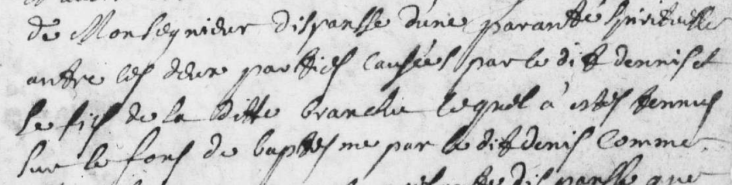 de Monsegnieur dispansse d'une parantée spirituelle
antre les deux partties causées par le dit dennis et
le fils de la ditte branche lequel a estés tennus
sur le fons de baptesme par le dit denis comme
dispansse que